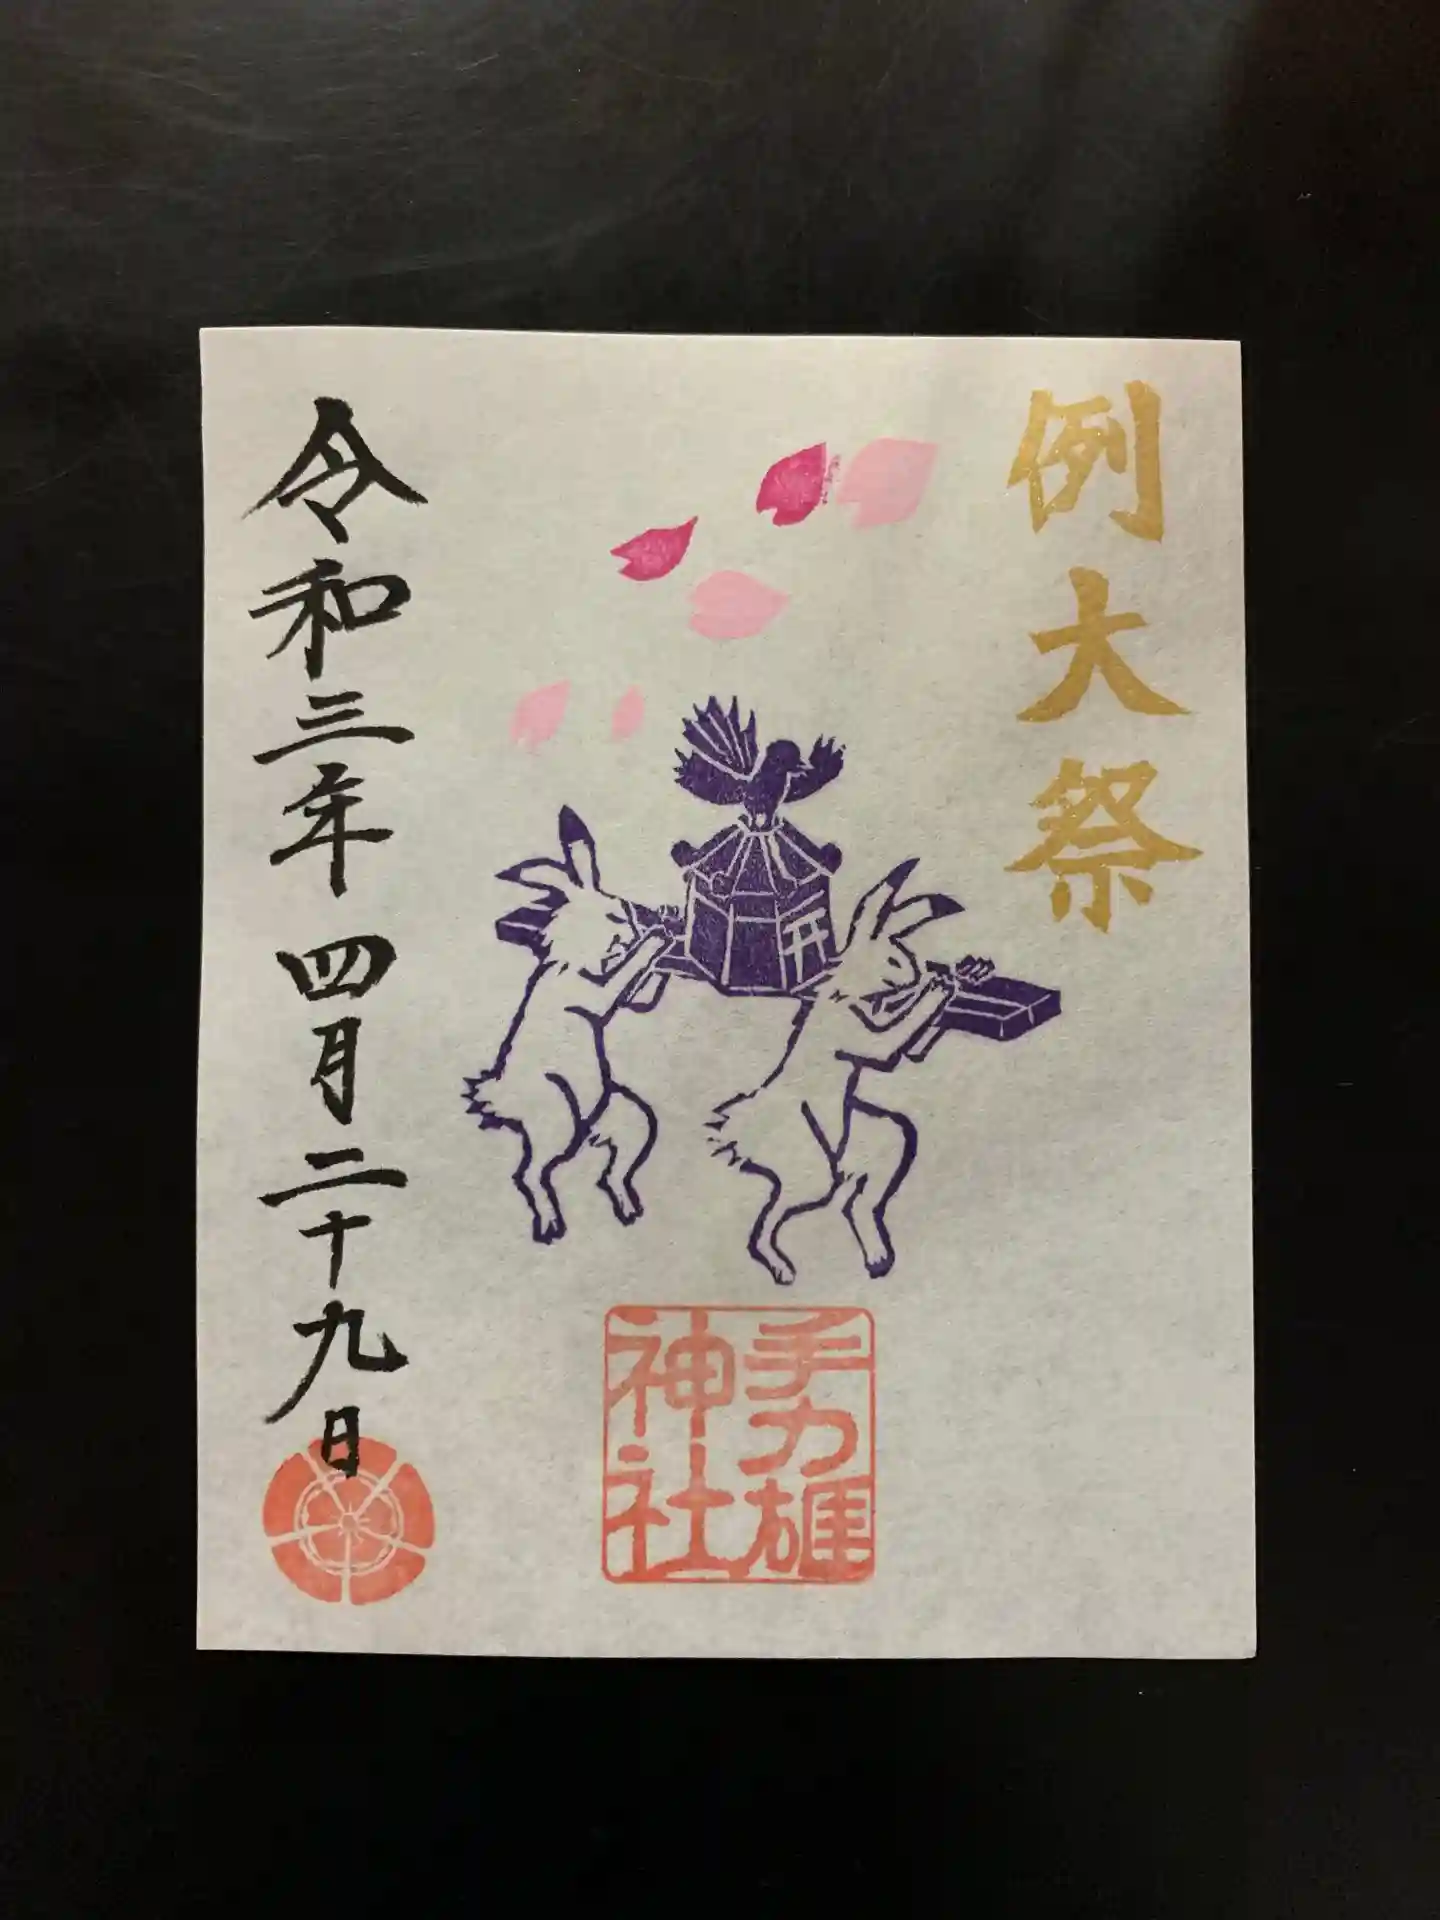 例大祭
手力雄
神社
令和三年四月二十九日